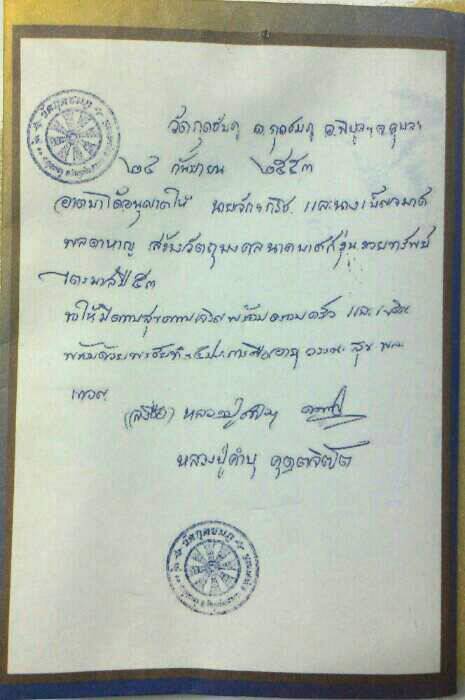 วัดกุดชมภู
วัดกุดชมภู ต.กุดชมภู อ.พิบูลฯ จ.อุบลฯ
๒๔ กันยายน ๒๕๕๓
อาตมาได้อนุญาตให้ นายจักรกริช และนางเบ็ญจมาศ
พลอาหาญ สร้างวัตถุมงคล รุ่นรวยทรัพย์
ไตรมาสปี ๕๓
ขอให้มีความสุขความเจริญ พร้อมครอบครัว และ
พร้อมด้วยพรชัยทั้ง ๔ ประการคืออายุ วรรณะ สุขะ พละ
เทอญ
(ลงชื่อ) หลวงปู่คำบุ
หลวงปู่คำบุ คุตฺตจิตฺโต
วัดกุดชมภู